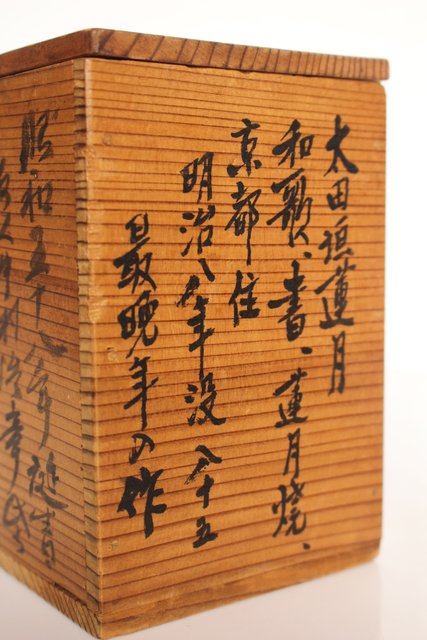 太田垣蓮月
和歌、書、蓮月焼、
京都住
明治八年没 八十五
最晩年の作
昭和五十八年誕生